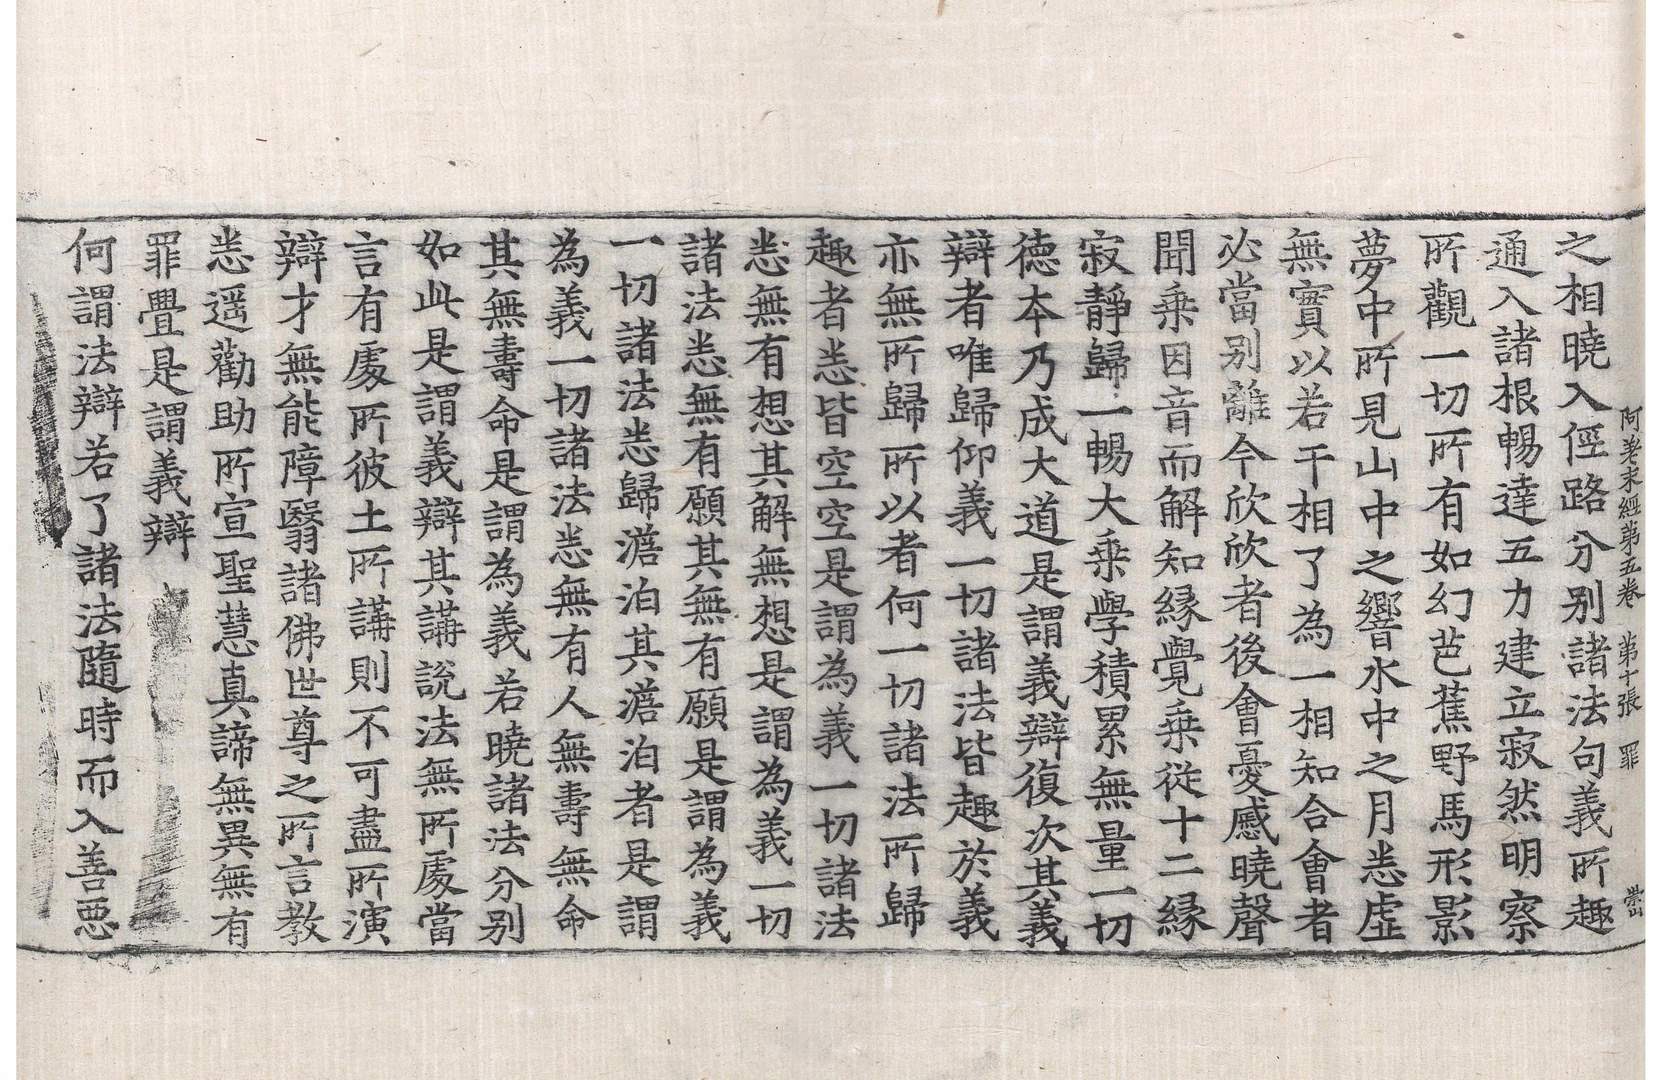 阿差末經第五卷 第十張 罪
之相曉入俓路分別諸法句義所趣
通入諸根暢達五力建立寂然明察
所觀一切所有如幻芭蕉野馬形影
夢中所見山中之響水中之月悉虛
無實以若干相了為一相知合會者
必當別離今欣欣者後會憂慼曉聲
聞乗因音而解知緣覺乗從十二緣
寂靜歸一暢大乗學積累無量一切
德本乃成大道是謂義辯復次其義
辯者唯歸仰義一切諸法皆趣於義
亦無所歸所以者何一切諸法所歸
趣者悉皆空空是謂為義一切諸法
悉無有想其解無想是謂為義一切
諸法悉無有願其無有願是謂為義
一切諸法悉歸澹泊其澹泊者是謂
為義一切諸法悉無有人無壽無命
其無壽命是謂為義若曉諸法分別
如此是謂義辯其講說法無所處當
言有處所彼土所講則不可盡所演
辯才無能障翳諸佛世尊之所言教
悉遥勸助所宣聖慧真諦無異無有
罪舋是謂義辯
何謂法辯若了諸法隨時而入善惡